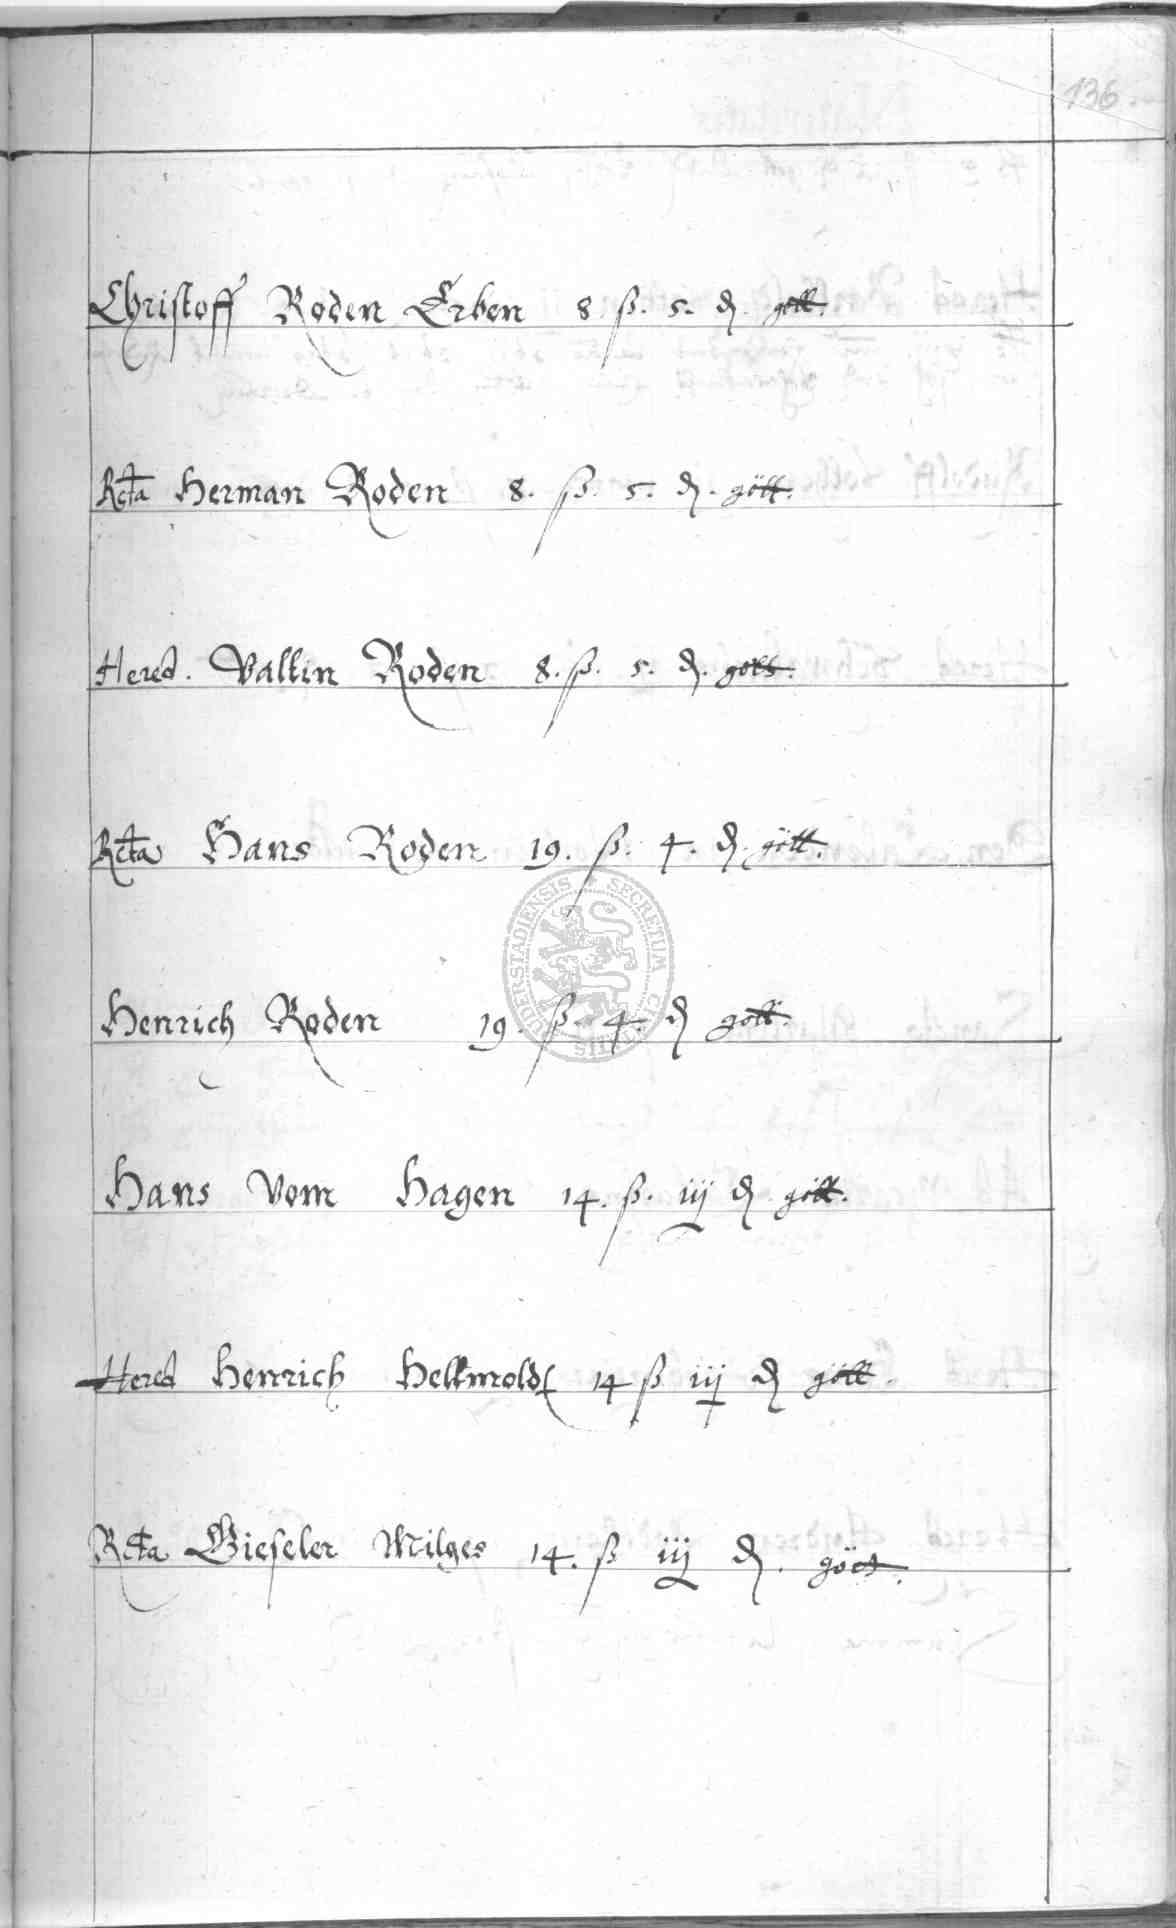 136
Christoff Roden Erben 8 ß. 5. ₰. gött.
Rcta Herman Roden 8. ß. 5. ₰. gött.
Hered. Valtin Roden 8. ß. 5. ₰. gött.
Rcta Hans Roden 19. ß. 4. ₰. gött.
Henrich Roden 19. ß. 4. ₰ gött.
Hans Vom Hagen 14. ß. iij ₰ gött.
Hered Henrich Helmold 14 ß iij ₰ gött.
Rcta Gieseler Milges 14. ß iij ₰. gött.
SECRETUM CIVITATIS DUDERSTADIENSIS